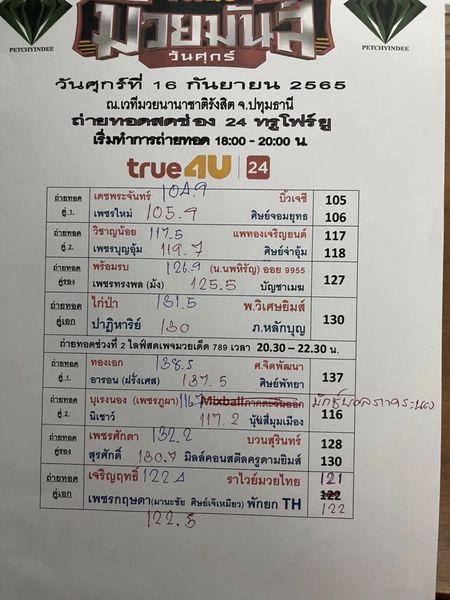 PETCHYINDEE
มวยมันส์
วันศุกร์
PETCHYINDEE
วันศุกร์ที่ 16 กันยายน 2565
ณ.เวทีมวยนานาชาติรังสิต จ.ปทุมธานี
ถ่ายทอดสดช่อง 24 ทรูโฟร์ยู
เริ่มทำการถ่ายทอด 18:00 - 20:00 น.
true4U 24
ถ่ายทอด คู่ .1. เดชพระจันทร์ 104.9 บิ๊วเจซี 105
เพชรใหม่ 105.9 ศิษย์จอมยุทธ 106
ถ่ายทอด คู่ 2. วิชาญน้อย 117.5 แพทองเจริญยนต์ 117
เพชรบุญอุ้ม 119.7 ศิษย์จ่าอุ้ม 118
ถ่ายทอด คู่รอง พร้อมรบ 126.9 (น.นพหิรัญ) ออย 9955 127
เพชรทรงพล (มัง) 125.5 บัญชาเมฆ
ถ่ายทอด คู่เอก ไก่ป่า 131.5 พ.วิเศษยิมส์ 130
ปาฏิหาริย์ 130 ภ.หลักบุญ
ถ่ายทอดช่วงที่ 2 ไลฟ์สดเพจมวยเด็ด 789 เวลา 20.30 – 22.30 น.
ถ่ายทอด คู่ .1. ทองเอก 138.5 ศ.จิตพัฒนา 137
อารอน (ฝรั่งเศส) 137.5 ศิษย์พัทยา
ถ่ายทอด คู่ 2. บุเรงนอง (เพชรภูผา) 116.7 Mixballภาคตะวันออก 116
นิเชาว์ 117.2 นุ้ยสี่มุมเมือง
ถ่ายทอด คู่รอง เพชรศักดา 132.2 บวนสุรินทร์ 128
สุรศักดิ์ 130.7 มิลล์คอนสตีลครูดามยิมส์ 130
ถ่ายทอด คู่เอก เจริญฤทธิ์ 122.4 ราไวย์มวยไทย 121
122
เพชรกฤษดา(มานะชัย ศิษย์เจ๊เหมียว) พักยก TH 122
122.5